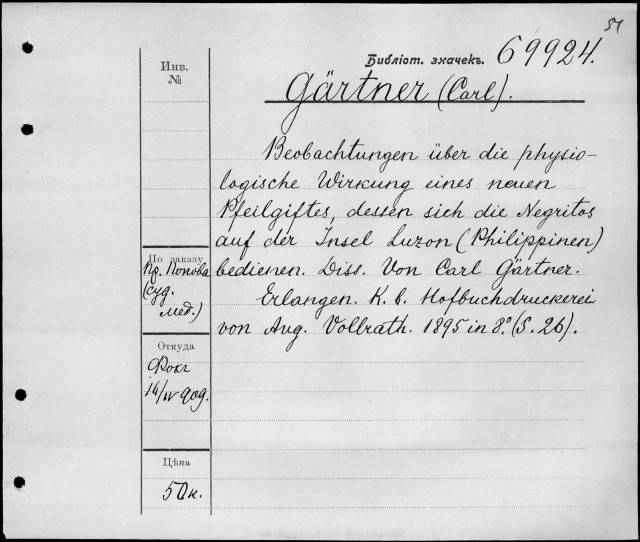 51
Библіот. значекъ. 69924.
Gärtner (Carl).
Инв.
№
Beobachtungen über die physio-
logische Wirkung eines neuen
Pfeilgiftes, dessen sich die Negritos
auf der Insel Luzon (Philippinen)
bedienen. Diss. Von Carl Gärtner.
Erlangen. K. b. Hofbuchdruckerei
von Aug. Vollrath. 1895 in 8.° (S. 26).
По заказу
Пр. Попова
(суд.
мед.)
Откуда
Фокъ
14/IV 909.
Цѣна
50 к.